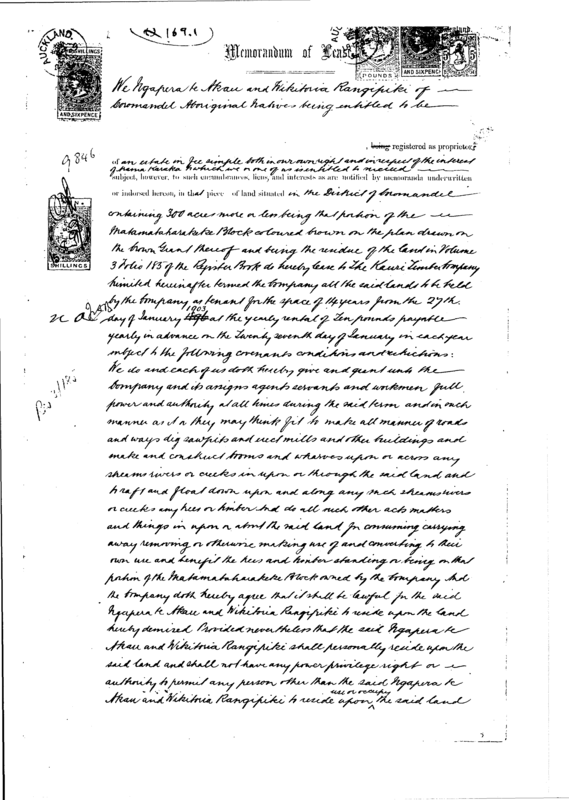 N 169.1
AUCKLAND.
Memorandum of Lease
SHILLINGS
AND SIXPENCE
POUNDS
AND SIXPENCE
We Ngapera te Akau and Wikitoria Rangipiki of
Coromandel Aboriginal Natives being entitled to be
, being registered as proprietors
of an estate in fee simple both in our own right and in respect of the interest
of Hama Karaka which we or one of us is entitled to succeed
subject, however, to such encumbrances, liens, and interests as are notified by memoranda underwritten
or indorsed hereon, in that piece of land situated in the District of Coromandel
9846
containing 300 acres more or less being that portion of the
Matamataharakeke Block coloured brown on the plan drawn on
the Crown Grant thereof and being the residue of the land in Volume
3 Folio 185 of the Register Book do hereby lease to The Kauri Timber Company
SHILLINGS
Limited hereinafter termed the Company all the said lands to be held
by the Company as tenant for the space of 14 years from the 27th
day of January 1903 at the yearly rental of Ten pounds payable
yearly in advance on the Twenty seventh day of January in each year
subject to the following covenants conditions and restrictions:
We do and each of us doth hereby give and grant unto the
Company and its assigns agents servants and workmen full
power and authority at all times during the said term and in such
manner as it or they may think fit to make all manner of roads
and ways dig sawpits and erect mills and other buildings and
make and construct booms and wharves upon or across any
streams rivers or creeks in upon or through the said land and
to raft and float down upon and along any such streams rivers
or creeks any trees or timber And do all such other acts matters
and things in upon or about the said land for consuming carrying
away removing or otherwise making use of and converting to their
own use and benefit the trees and timber standing or being on that
portion of the Matamataharakeke Block owned by the Company And
the Company doth hereby agree that it shall be lawful for the said
Ngapera te Akau and Wikitoria Rangipiki to reside upon the land
hereby demised Provided nevertheless that the said Ngapera te
Akau and Wikitoria Rangipiki shall personally reside upon the
said land and shall not have any power privilege right or
authority to permit any person other than the said Ngapera te
Akau and Wikitoria Rangipiki to reside upon use or occupy the said land